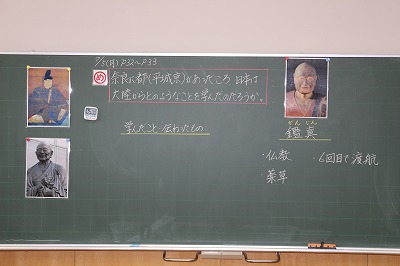 7/5(月) P32〜P33
め 奈良に都(平城京)があったころ 日本は
大陸からどのようなことを学んだのだろうか。
学んだこと 伝わったもの
がん じん
鑑真
・仏教
・薬草
・6回目で渡航